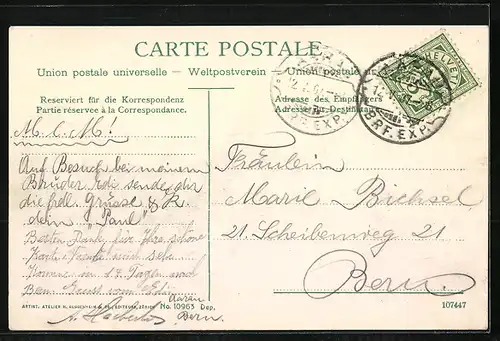 CARTE POSTALE
Union postale universelle – Weltpostverein – Union postale
Reserviert für die Korrespondenz
Partie réservée à la Correspondance.
Adresse des Empfängers
Adresse du Destinataire
HELVETIA
5
BRF. EXP.
BRF. EXP.
M. l. M!
Auf Besuch bei meinem
Bruder sende dir
die frdl. Grüsse & K.
dein "Paul"
Besten Dank für Ihre schöne
Karte
Komme in 14 Tagen nach
Bern. Gruss vom
Aarau
Bern.
Fräulein
Marie Bichsel
21. Scheibenweg 21
Bern.
ARTIST. ATELIER H. EDITEURS, ZÜRICH No. 10963 Dep.
107447